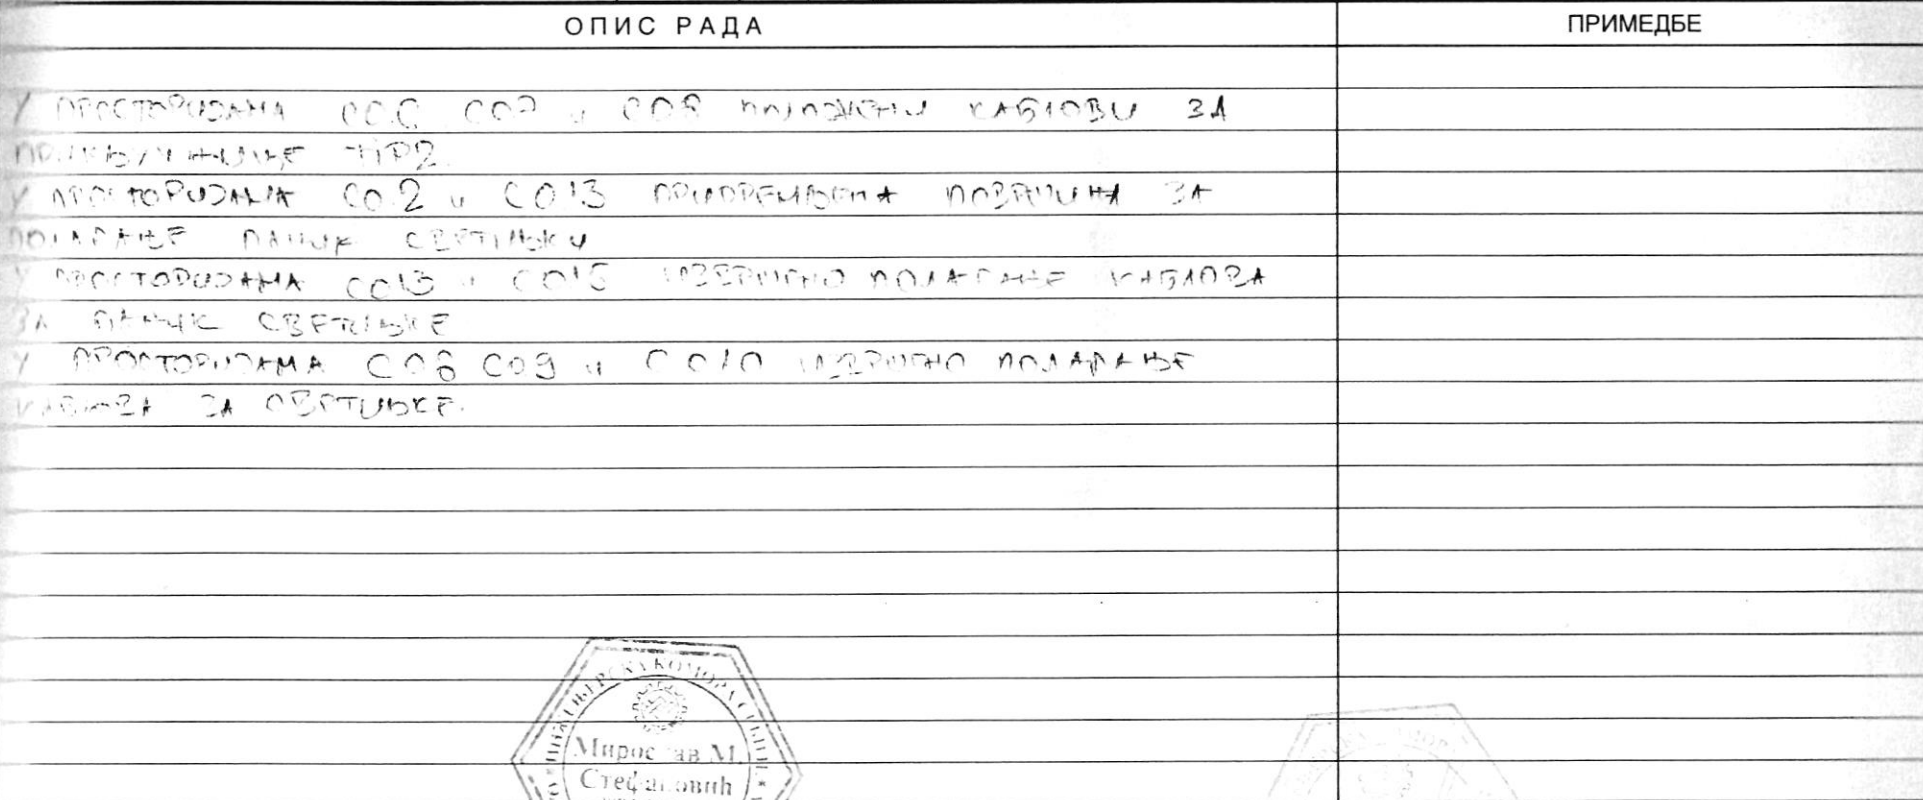 ОПИС РАДА
ПРИМЕДБЕ
У ПРОСТОРИЈАМА СО6 СО7 и СО8 ПОЛОЖЕНИ КАБЛОВИ ЗА
ПРИКЉУЧНИЦЕ
У ПРОСТОРИЈАМА СО2 и СО13 ПРИПРЕМЉЕНА ПОВРШИНА ЗА
ПОЛАГАЊЕ ПАНИК СВЕТИЉКИ
У ПРОСТОРИЈАМА СО13 и СО15 ИЗВРШЕНО ПОЛАГАЊЕ КАБЛОВА
ЗА ПАНИК СВЕТИЉКЕ
У ПРОСТОРИЈАМА СО6 СО9 и СО10 ИЗВРШЕНО ПОЛАГАЊЕ
КАБЛОВА ЗА СВЕТИЉКЕ.
ИНЖЕЊЕРСКА КОМОРА СРБИЈЕ
Мирослав М.
Стефановић